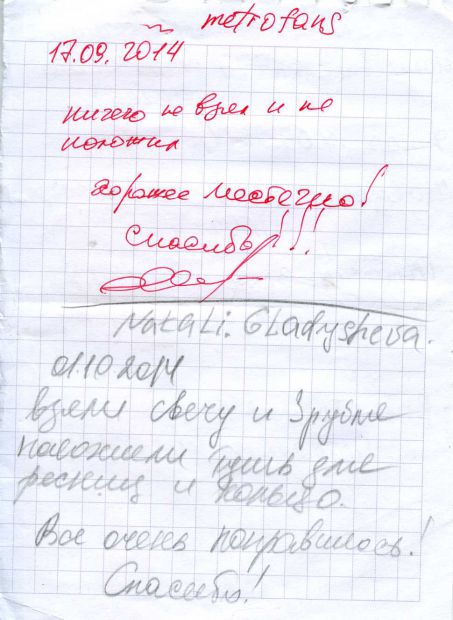 metrofans
17.09.2014
ничего не взял и не
положил
Хорошее местечко!
Спасибо!!!
Natali. Gladysheva.
01.10.2014
взяли свечу и 3 рубля
положили тушь для
ресниц и кольцо.
Все очень понравилось!
Спасибо!